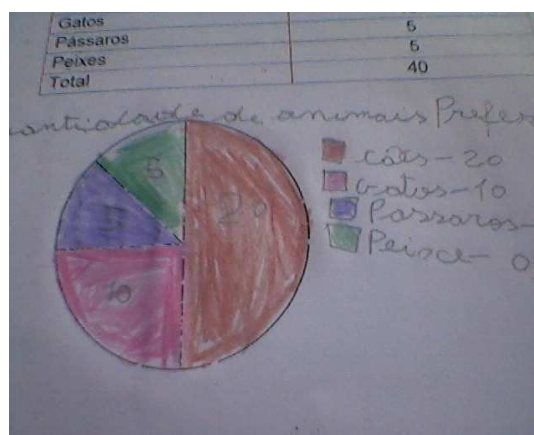 Gatos
Pássaros 5
Peixes 5
Total 40
antidade de animais Prefer
cães - 20
Gatos - 10
Passaros -
Peixe - 0
5
20
10